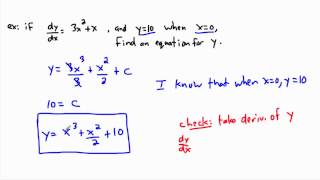 ex: if dy/dx = 3x² + x, and y=10 when x=0,
find an equation for y.
y = 3x³/3 + x²/2 + C
I know that when x=0, y=10
10 = C
y = x³ + x²/2 + 10
check: take deriv. of y
dy/dx